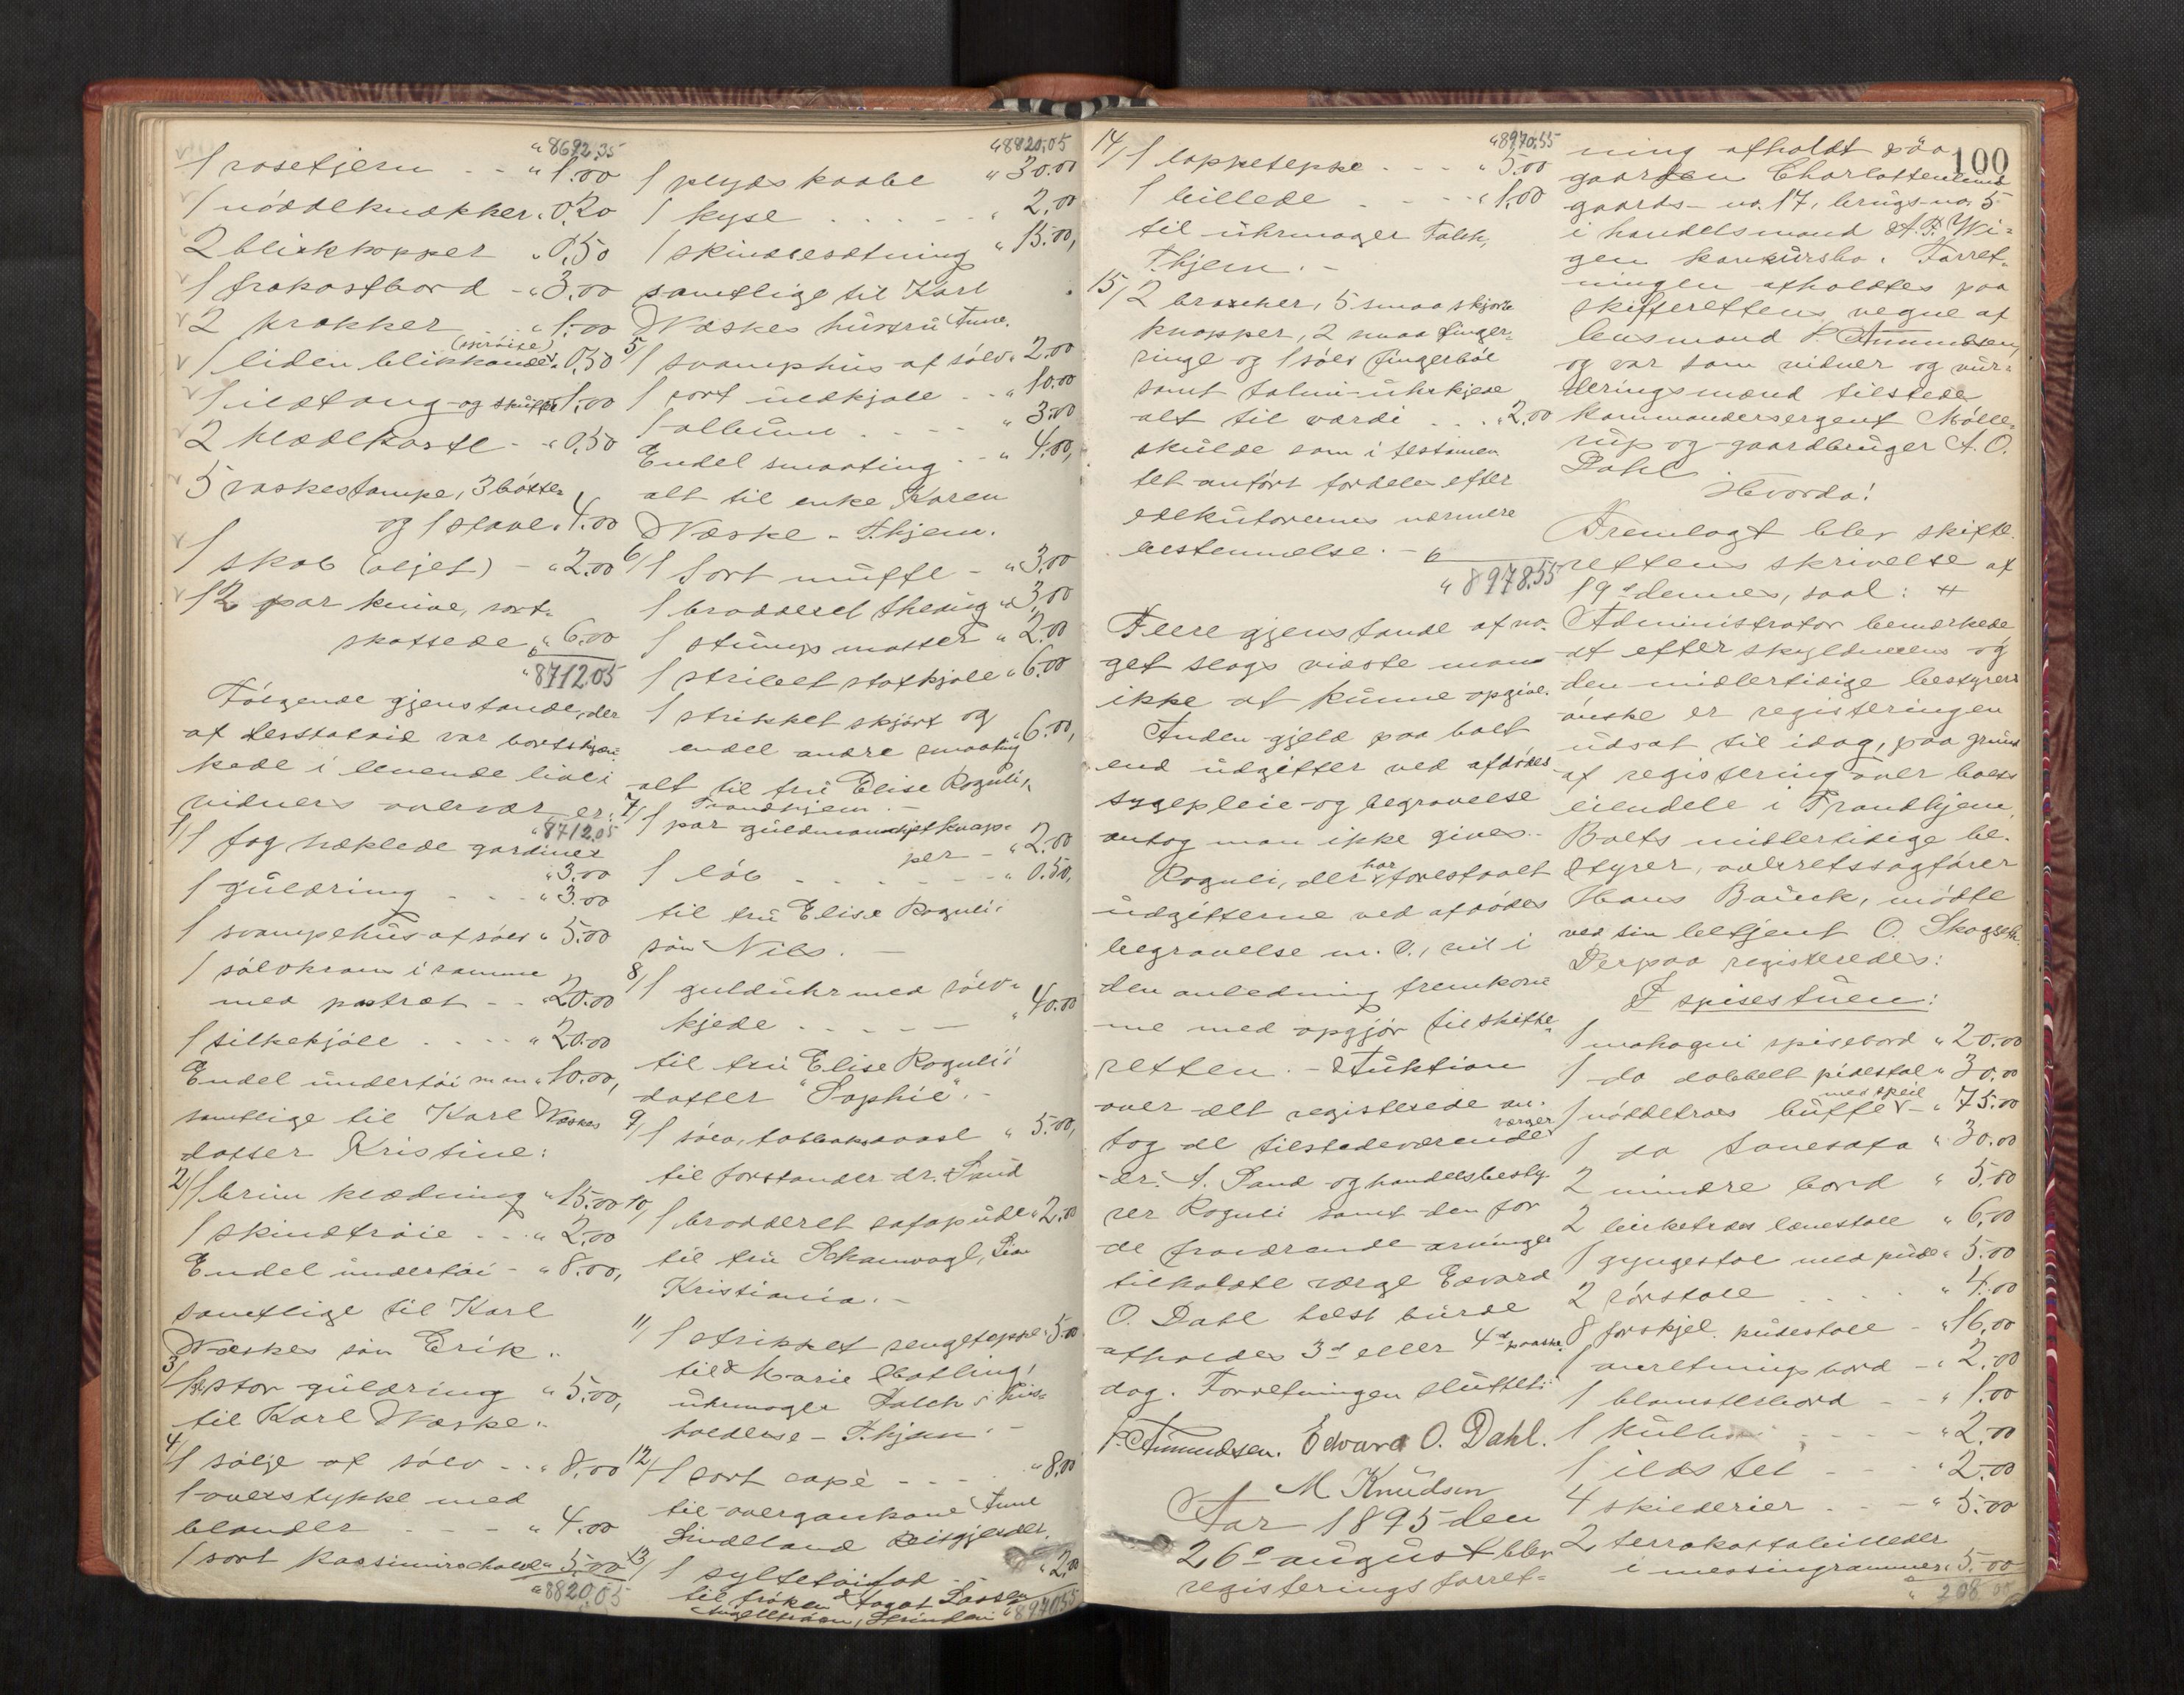 "8692.35
1 rosetjern - - " 1.00
1 nöddeknækker " 0.20
2 blikkopper " 0.50
1 frokostbord - " 3.00
2 krakker " 1.00
1 liden blikkande " 0.50
1 ildtang og skuffe 1.00
2 klædekoste - " 0.50
5 vaskestampe, 3 bötter
og 1 stave " 4.00
1 skab (oljet) - " 2.00
12 par knive, sort-
skaftede " 6.00
"8712.05
Fölgende gjenstande, der
af var bortskjæn-
kede i levende live i
vidners overvær er:
"8712.05
1/ 1 fag hæklede gardiner
" 3.00
1 guldring - - - " 3.00
1 svampehus af sölv " 5.00
1 sölvkrans i ramme
med portræt - - " 20.00
1 silkekjöle . . . . " 20.00
Endel undertöi m m " 10.00,
samtlige til Karl Næskes
datter Kristine:
2/ 1 brun klædning " 15.00
1 skindtröie - - - " 2.00
Endel undertöi - " 8.00,
samtlige til Karl
Næskes sön Erik.
3/ 1 stor guldring " 5.00,
til Karl Næske.
4/ 1 sölje af sölv - - " 8.00
1 overstykke med
blonder - - - " 4.00
1 sort kassimirschavl " 5.00
"8820.05
"8820.05
1 plyds kaabe " 30.00
1 kyse . . . . . " 2.00
1 skindbesætning " 15.00,
samtlige til Karl
Næskes hustru Anne.
5/ 1 svamphus af sölv " 2.00
1 sort uldkjole - - " 10.00
1 album - - - - " 3.00
Endel smaating - - " 4.00,
alt til enke Karen
Næske - Thjem.
6/ 1 sort muffe - " 3.00
1 broderet " 3.00
1 matter " 2.00
1 stribet stofkjole " 6.00
1 strikket skjört og
endel andre smaating " 6.00,
alt til fru Elise Roguli,
Trondhjem. -
7/ 1 par guldmanchetknap-
per - " 2.00
1 - - - - - " 0.50,
til fru Elise Roguli's
sön Nils. -
8/ 1 guldühr med sölv-
kjede - - - - - " 40.00
til fru Elise Roguli's
datter "Sophie". -
9/ 1 sölv, tobaksdaase " 5.00,
til forstander dr. Sand
10/ 1 broderet sofapüde " 2.00
til fru
Kristiania. -
11/ 1 strikket sengeteppe " 5.00
til Marie
ührmager Falch's hus-
holderske - Thjem. -
12/ 1 sort cape - - - - " 8.00
til Anne
Lindland
13/ 1 syltetöifad - - " 2.00
til fröken Dagot Lassen
Strinden "8970.55
"8970.55
14/ 1 loppeteppe - - - " 5.00
1 billede - - - - " 1.00
til ührmager Falch,
Thjem. -
15/ 2 brocher, 5 smaa skjorte
knapper, 2 smaa finger-
ringe og 1 sölv fingerböl
samt talmi-uhrkjede
alt til værdi . . . " 2.00
skulde som i testamen
tet anført fordeles efter
exekutorernes nærmere
bestemmelse. -
"8978.55
Flere gjenstande af no-
get slags vidste man
ikke at kunne opgive.
Anden gjeld paa boet
end udgifter ved afdödes
sygepleie og begravelse
antog man ikke gives. -
Roguli, der har forestaaet
udgifterne ved afdödes
begravelse m. v., vil i
den anledning fremkom-
me med opgjör til skifte-
retten. - Auktion
over det registerede an-
tog de tilstedeværende værger
dr. A. Sand og handelsbesty-
rer Roguli samt den for
de fraværende arvinger
tilkaldte værge Edvard
O. Dahl helst burde
afholdes 3d eller 4d paaske-
dag. Forretningen sluttet:
P. Amundsen. Edvard O. Dahl.
M Knudsen
Aar 1895 den
26d august blev
registeringsforret-
100
ning afholdt paa
gaarden Charlottenlund
gaards-no. 17, brugs-no. 5
i handelsmand A. P. Wi-
gen konkursbo. Forret-
ningen afholdtes paa
skifterettens vegne af
lensmand P. Amundsen,
og var som vidner og vur-
deringsmænd tilstede
kommandersergent Mölle-
rup og gaardbruger A. O.
Dahl
Hvorda!
Fremlagt blev skifte-
rettens skrivelse af
19d dennes, saal: #
Administrator bemærkede
at efter skyldnerens og
den midlertidige bestyrers
önske er registeringen
udsat til idag, paa grund
af registering over boets
eiendele i Trondhjem
Boets midlertidige be-
styrer, overretssagförer
Hans Bauck, mödte
ved sin betjent O. Skogseth.
Derpaa registeredes:
I spisestuen:
1 mahogni spisebord " 20.00
1 do dobbelt pidestal " 30.00
1 nöddetræs buffet med speil - " 75.00
1 do sofa " 30.00
2 mindre bord " 5.00
2 birketræs lænestole " 6.00
1 gyngestol med pude " 5.00
2 rörstole . . . . " 4.00
8 forskjel. pidestole - " 16.00
1 anretningsbord - " 2.00
1 blomsterbord - - " 1.00
1 - - - - " 2.00
1 ildstel - - - " 2.00
4 skilderier - - - " 5.00
2 terrakottabilleder
i messingrammer " 5.00
" 208.00